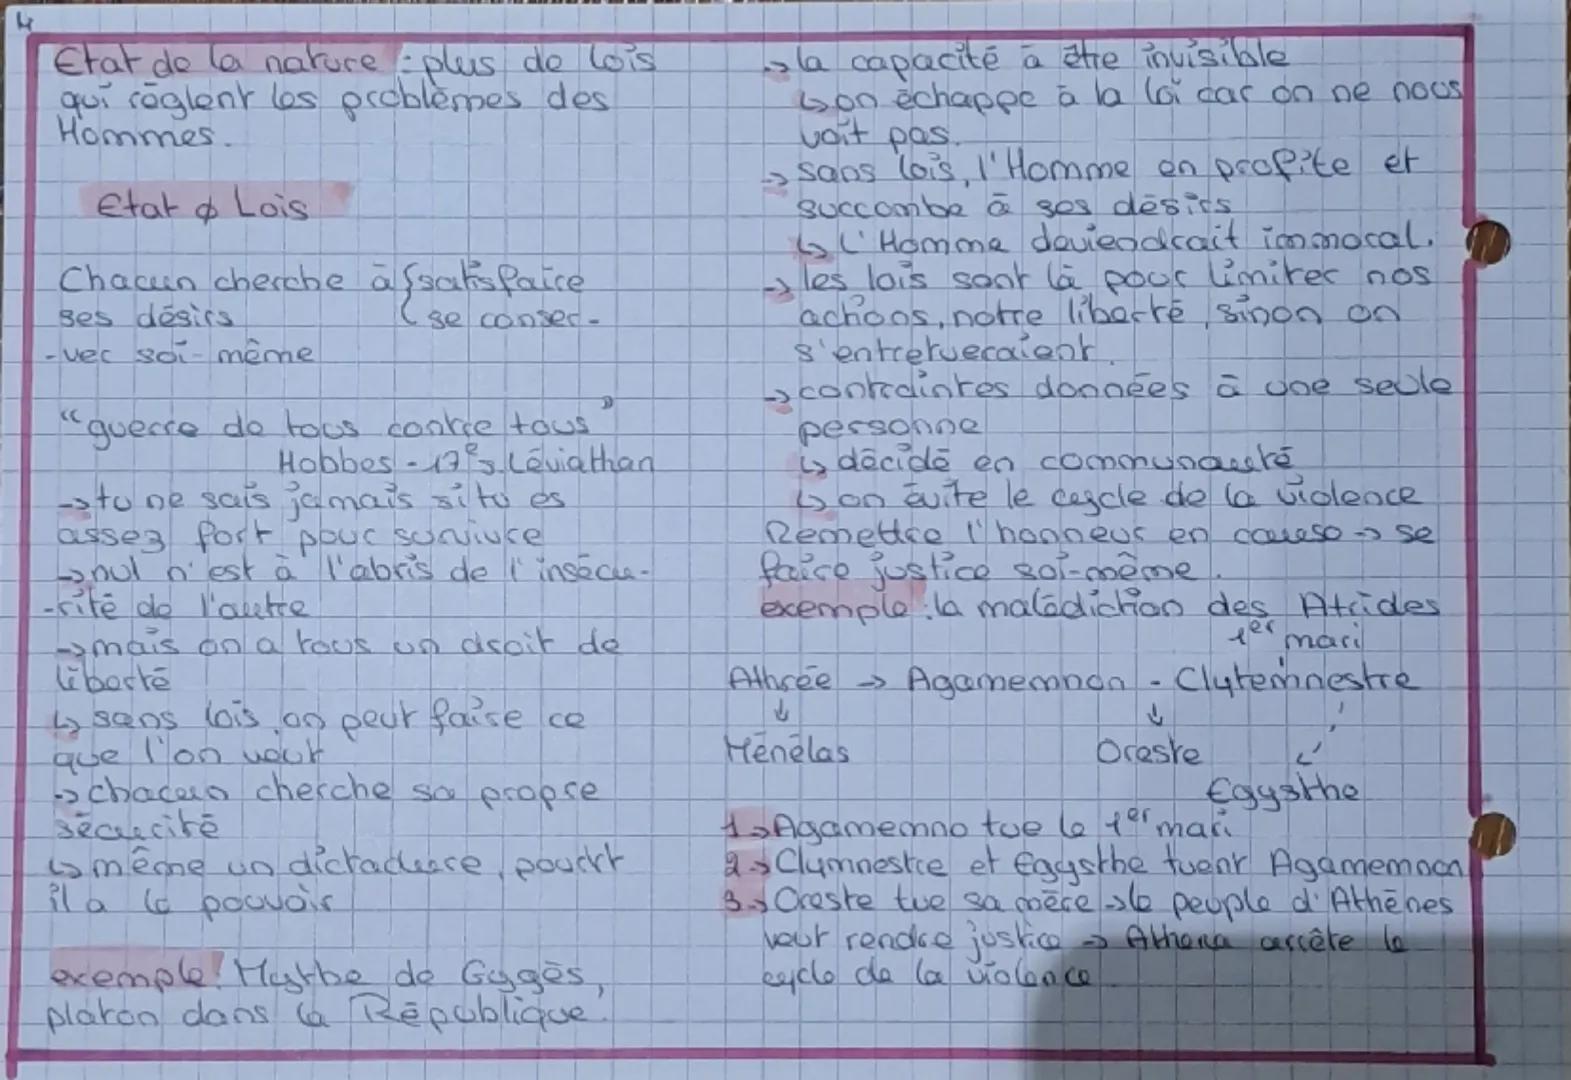 4
Etat de la nature : plus de lois
qui règlent les problèmes des
Hommes.
Etat ϕ Lois
Chacun cherche à { satisfaire
ses désirs ( se conser-
-ver soi-même
"guerre de tous contre tous"
Hobbes - 17e s, Léviathan
→ tu ne sais jamais si tu es
assez fort pour survivre
→ nul n'est à l'abris de l'insécu-
-rité de l'autre
→ mais on a tous un droit de
liberté
↳ sans lois, on peut faire ce
que l'on veut
→ chacun cherche sa propre
sécurité
↳ même un dictateur,
il a le pouvoir
exemple : Mythe de Gygès,
platon dans la République.
→ la capacité à être invisible
↳ on échappe à la loi car on ne nous
voit pas.
→ sans lois, l'Homme en profite et
succombe à ses désirs
↳ L'Homme deviendrait immoral.
→ les lois sont là pour limiter nos
actions, notre liberté, sinon on
s'entretueraient.
→ contraintes données à une seule
personne
↳ décidé en communauté
↳ on évite le cycle de la violence
Remettre l'honneur en cause → se
faire justice soi-même.
exemple : la malédiction des Atrides
1er mari
Athrée → Agamemnon - Clytemnestre
↓ ↓
Ménélas Oreste
Egysthe
1 → Agamemno tue le 1er mari
2 → Clymnestre et Egysthe tuent Agamemnon
3 → Oreste tue sa mère → le peuple d'Athènes
veut rendre justice → Athena arrête le
cycle de la violence